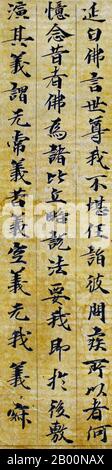 延白佛言世尊我不堪任詣彼問疾所以者何
憶念昔者佛為諸比丘略說法要我即於後敷
演其義謂无常義苦義空義无我義寂
alamy - 2B00NAX